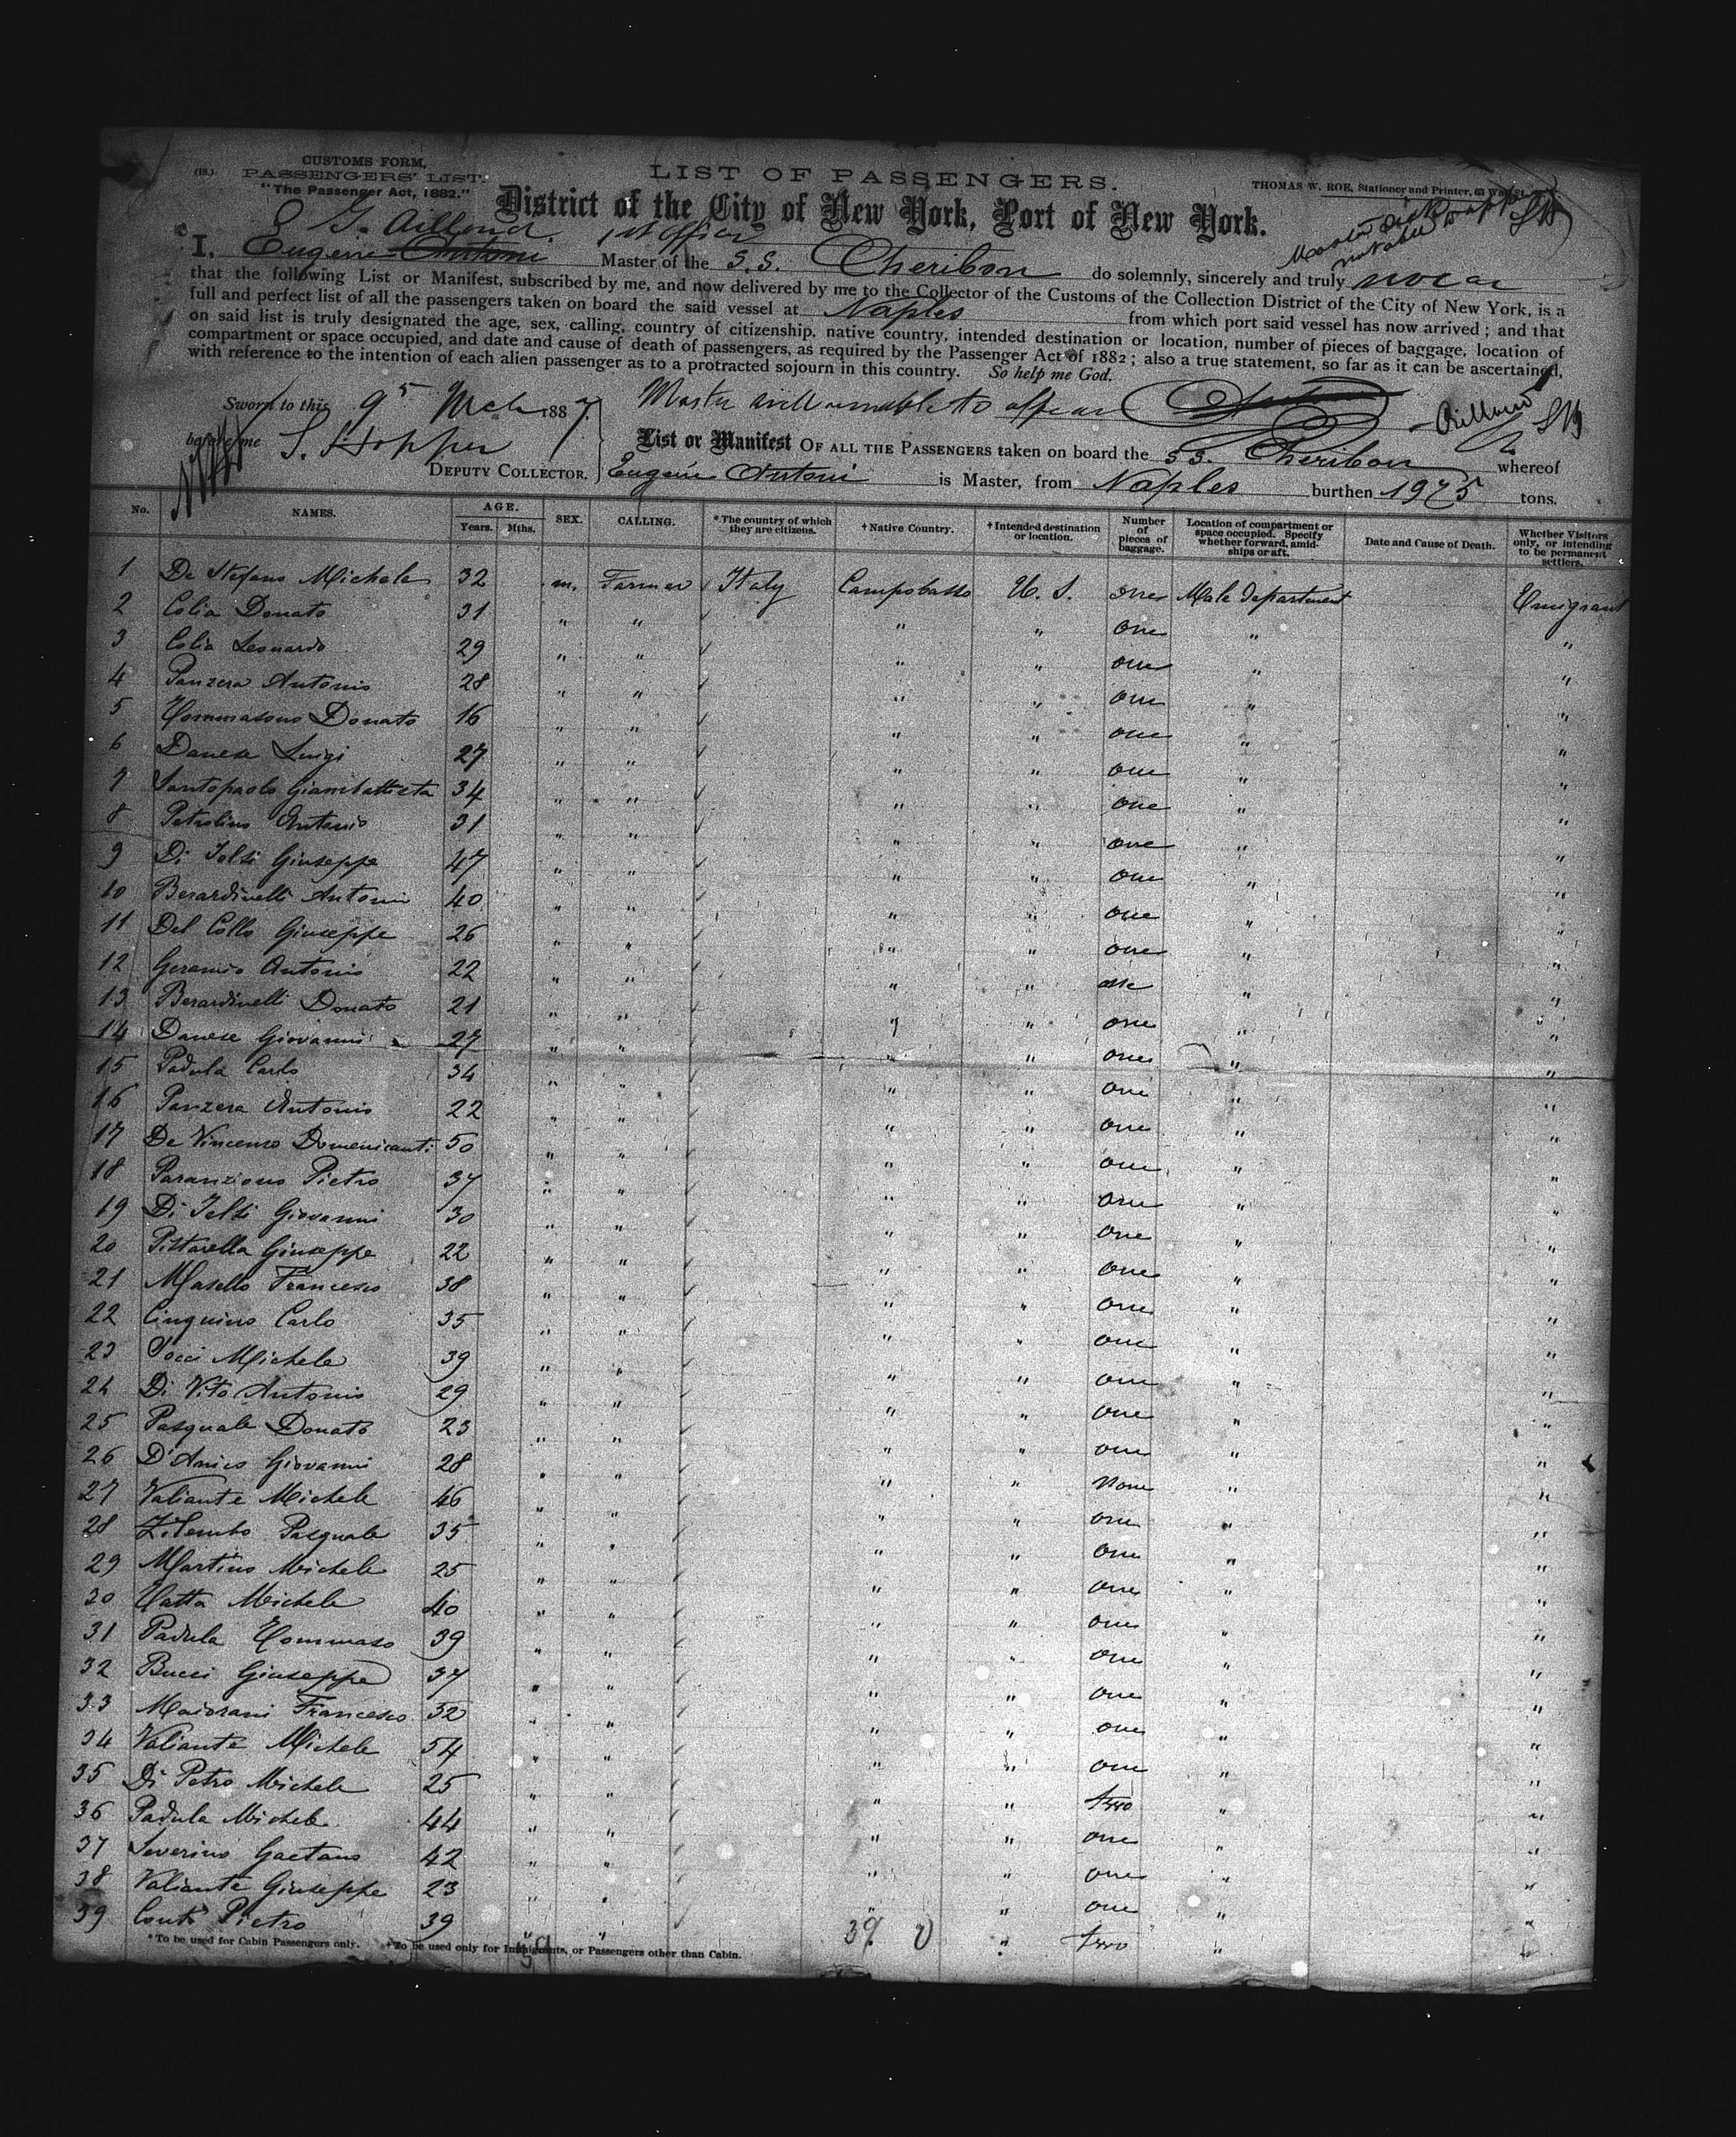 (18.)
CUSTOMS FORM,
PASSENGERS' LIST.
"The Passenger Act, 1882."
LIST OF PASSENGERS.
THOMAS W. ROE, Stationer and Printer, 63 Wall St.
District of the City of New York, Port of New York.
E G. Aillaud 1st officer
I, Eugène Antoni Master of the S.S. Cheribon do solemnly, sincerely and truly swear
that the following List or Manifest, subscribed by me, and now delivered by me to the Collector of the Customs of the Collection District of the City of New York, is a
full and perfect list of all the passengers taken on board the said vessel at Naples from which port said vessel has now arrived; and that
on said list is truly designated the age, sex, calling, country of citizenship, native country, intended destination or location, number of pieces of baggage, location of
compartment or space occupied, and date and cause of death of passengers, as required by the Passenger Act of 1882; also a true statement, so far as it can be ascertained,
with reference to the intention of each alien passenger as to a protracted sojourn in this country. So help me God.
Sworn to this 9th Mch 1887.
Master unable to appear
before me S. Hopper
DEPUTY COLLECTOR.
List or Manifest OF ALL THE PASSENGERS taken on board the S.S. Cheribon whereof
Eugène Antoni is Master, from Naples burthen 1975 tons.
No. NAMES. AGE. Years. Mths. SEX. CALLING. * The country of which they are citizens. † Native Country. † Intended destination or location. Number of pieces of baggage. Location of compartment or space occupied. Specify whether forward, amidships or aft. Date and Cause of Death. Whether Visitors only, or intending to be permanent settlers.
1 De Stefano Michele 32 m. Farmer Italy Campobasso U. S. one Male department Emigrant
2 Colia Donato 31 " " " " one " "
3 Colia Leonardo 29 " " " " one " "
4 Panzera Antonio 28 " " " " one " "
5 Tommasone Donato 16 " " " " one " "
6 Danese Luigi 27 " " " " one " "
7 Santopaolo Giambattista 34 " " " " one " "
8 Petrolino Antonio 31 " " " " one " "
9 Di Ielsi Giuseppe 47 " " " " one " "
10 Berardinelli Antonio 40 " " " " one " "
11 Del Collo Giuseppe 26 " " " " one " "
12 Geramio Antonio 22 " " " " one " "
13 Berardinelli Donato 21 " " " " one " "
14 Danese Giovanni 27 " " " " one " "
15 Padula Carlo 34 " " " " one " "
16 Panzera Antonio 22 " " " " one " "
17 De Vincenzo Domenicant. 50 " " " " one " "
18 Paranzono Pietro 37 " " " " one " "
19 Di Ielsi Giovanni 30 " " " " one " "
20 Pittarella Giuseppe 22 " " " " one " "
21 Masello Francesco 38 " " " " one " "
22 Cinquino Carlo 35 " " " " one " "
23 Tocci Michele 39 " " " " one " "
24 Di Vito Antonio 29 " " " " one " "
25 Pasquale Donato 23 " " " " one " "
26 D'Amico Giovanni 28 " " " " none " "
27 Valiante Michele 46 " " " " one " "
28 Pasquale 35 " " " " one " "
29 Martino Michele 25 " " " " one " "
30 Gatta Michele 40 " " " " one " "
31 Padula Tommaso 39 " " " " one " "
32 Bucci Giuseppe 37 " " " " one " "
33 Maiorani Francesco 32 " " " " one " "
34 Valiante Michele 54 " " " " one " "
35 Di Petro Michele 25 " " " " two " "
36 Padula Michele 44 " " " " one " "
37 Severino Gaetano 42 " " " " one " "
38 Valiante Giuseppe 23 " " " " one " "
39 Conti Pietro 39 " " " two " "
39
* To be used for Cabin Passengers only. † To be used only for Immigrants, or Passengers other than Cabin.
39